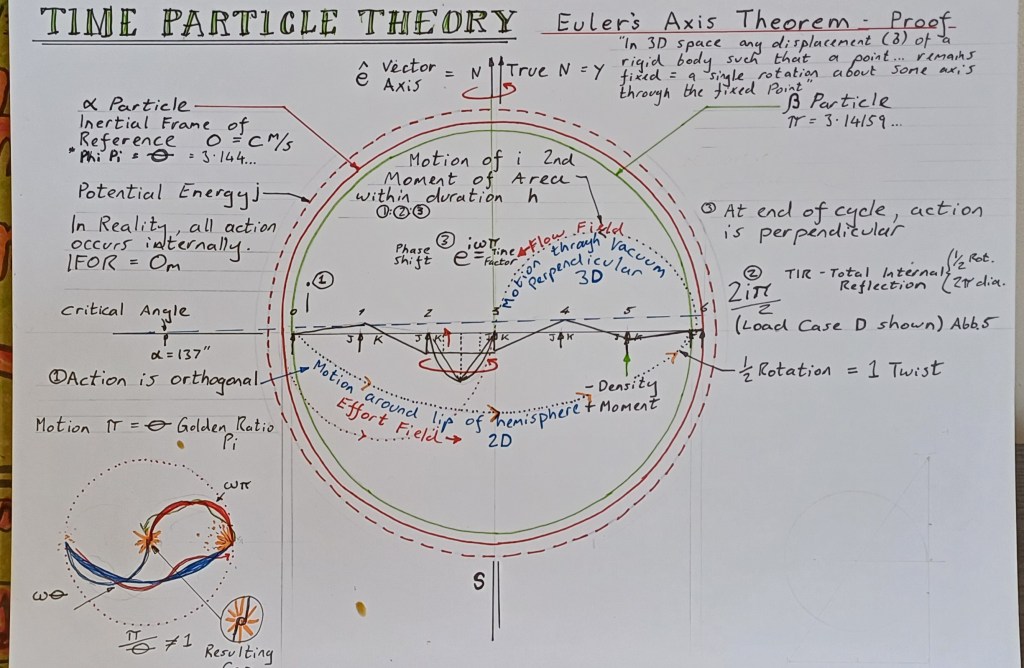 TIME PARTICLE THEORY
Euler's Axis Theorem - Proof
"In 3D space any displacement (3) of a
rigid body such that a point... remains
fixed = a single rotation about some axis
through the fixed Point"
ê Vector Axis = N
True N = Y
α Particle
Inertial Frame of
Reference 0 = C m/s
*Phi Pi = ⊖ = 3.144...
β Particle
π = 3.14159...
Potential Energy j
In Reality, all action
occurs internally.
IFOR = 0m
Motion of i 2nd
Moment of Area
within duration h
①:②:③
Phase Shift ③ e^iωπ = Time Factor
Flow Field
Motion through Vacuum
perpendicular
3D
③ At end of cycle, action
is perpendicular
② TIR - Total Internal Reflection { 1/2 Rot. 2π dia.
2iπ/2
(Load Case D shown) Abb.5
Critical Angle
α = 137"
① i
0 1 2 3 4 5 6
J K J K J K J K J K
① Action is orthogonal
Motion around lip of hemisphere
2D
Effort Field
- Density
+ Moment
1/2 Rotation = 1 Twist
Motion π = ⊖ Golden Ratio
Pi
ωπ
ω⊖
π/⊖ ≠ 1
Resulting
S